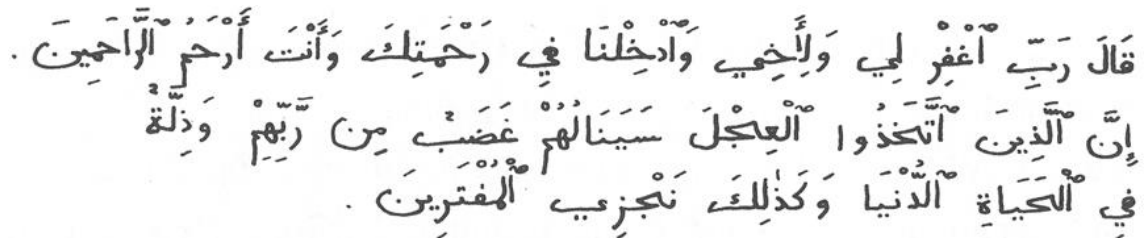 قَالَ رَبِّ ٱغْفِرْ لِي وَلِأَخِي وَأَدْخِلْنَا فِي رَحْمَتِكَ وَأَنْتَ أَرْحَمُ ٱلرَّاحِمِينَ .
إِنَّ ٱلَّذِينَ ٱتَّخَذُوا ٱلْعِجْلَ سَيَنَالُهُمْ غَضَبٌ مِن رَّبِّهِمْ وَذِلَّةٌ
فِي ٱلْحَيَاةِ ٱلدُّنْيَا وَكَذٰلِكَ نَجْزِي ٱلْمُفْتَرِينَ .